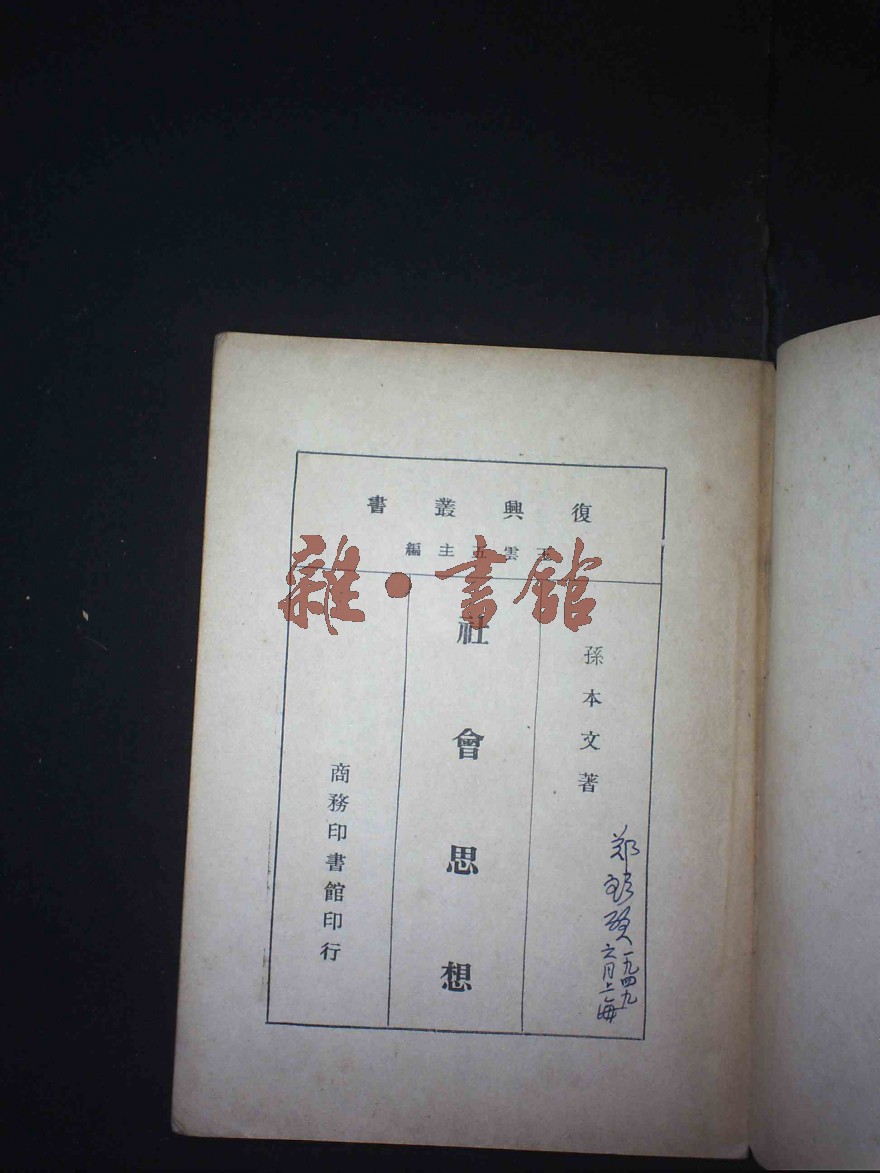 復興叢書
王雲五主編
孫本文著
社會思想
商務印書館印行
郑
一九四九
六月上海
雜·書館